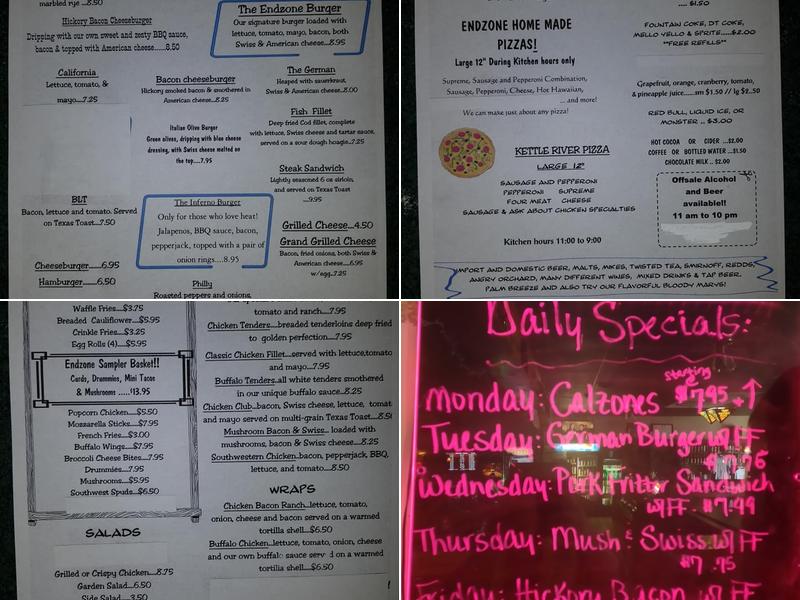 marbled rye ..8.50
Hickory Bacon Cheeseburger
Dripping with our own sweet and zesty BBQ sauce,
bacon & topped with American cheese.....8.50
The Endzone Burger
Our signature burger loaded with
lettuce, tomato, mayo, bacon, both
Swiss & American cheese...8.95
California
Lettuce, tomato, &
mayo...7.25
Bacon cheeseburger
Hickory smoked bacon & smothered in
American cheese...8.25
The German
Heaped with sauerkraut,
Swiss & American cheese...8.00
Italian Olive Burger
Green olives, dripping with blue cheese
dressing, with Swiss cheese melted on
the top....7.95
Fish Fillet
Deep fried Cod fillet, complete
with lettuce, Swiss cheese and tartar sauce,
served on a sour dough hoagie...7.25
Steak Sandwich
Lightly seasoned 6 oz sirloin,
and served on Texas Toast
...9.95
BLT
Bacon, lettuce and tomato. Served
on Texas Toast...7.50
The Inferno Burger
Only for those who love heat!
Jalapenos, BBQ sauce, bacon,
pepperjack, topped with a pair of
onion rings....8.95
Grilled Cheese...4.50
Grand Grilled Cheese
Bacon, fried onions, both Swiss &
American cheese....6.95
w/egg..7.25
Cheeseburger......6.95
Hamburger....6.50
Philly
Roasted peppers and onions,
.... $1.50
ENDZONE HOME MADE
PIZZAS!
Large 12" During Kitchen hours only
Supreme, Sausage and Pepperoni Combination,
Sausage, Pepperoni, Cheese, Hot Hawaiian,
... and more!
We can make just about any pizza!
KETTLE RIVER PIZZA
LARGE 12"
SAUSAGE AND PEPPERONI
PEPPERONI SUPREME
FOUR MEAT CHEESE
SAUSAGE & ASK ABOUT CHICKEN SPECIALTIES
Kitchen hours 11:00 to 9:00
FOUNTAIN COKE, DT COKE,
MELLO YELLO & SPRITE.....$2.00
**FREE REFILLS**
Grapefruit, orange, cranberry, tomato,
& pineapple juice.....sm $1.50 // lg $2.50
RED BULL, LIQUID ICE, OR
MONSTER .. $3.00
HOT COCOA OR CIDER ...$2.00
COFFEE OR BOTTLED WATER ...$1.50
CHOCOLATE MILK .. $2.00
Offsale Alcohol
and Beer
available!!
11 am to 10 pm
IMPORT AND DOMESTIC BEER, MALTS, MIKES, TWISTED TEA, SMIRNOFF, REDDS,
ANGRY ORCHARD, MANY DIFFERENT WINES, MIXED DRINKS & TAP BEER.
PALM BREEZE AND ALSO TRY OUR FLAVORFUL BLOODY MARYS!
Waffle Fries...$3.75
Breaded Cauliflower...$5.95
Crinkle Fries...$3.25
Egg Rolls (4)....$5.95
Endzone Sampler Basket!!
Curds, Drummies, Mini Tacos
& Mushrooms ......$13.95
Popcorn Chicken...$5.50
Mozzarella Sticks...$7.95
French Fries...$3.00
Buffalo Wings...$7.95
Broccoli Cheese Bites...7.95
Drummies...7.95
Mushrooms...$5.95
Southwest Spuds...$6.50
SALADS
Grilled or Crispy Chicken...8.75
Garden Salad...6.50
Side Salad....3.50
tomato and ranch....7.95
Chicken Tenders....breaded tenderloins deep fried
to golden perfection...7.95
Classic Chicken Fillet....served with lettuce,tomato
and mayo...7.95
Buffalo Tenders..all white tenders smothered
in our unique buffalo sauce...8.25
Chicken Club..bacon, Swiss cheese, lettuce, tomat
and mayo served on multi-grain Texas Toast....8.50
Mushroom Bacon & Swiss... loaded with
mushrooms, bacon & Swiss cheese...8.25
Southwestern Chicken..bacon, pepperjack, BBQ,
lettuce, and tomato...8.50
WRAPS
Chicken Bacon Ranch..lettuce, tomato,
onion, cheese and bacon served on a warmed
tortilla shell...$6.50
Buffalo Chicken..lettuce, tomato, onion, cheese
and our own buffalo sauce serv d on a warmed
tortilla shell...$6.50
Daily Specials:
Monday: Calzones starting @ $7.95 + ↑
Tuesday: German Burger w/ FF
Wednesday: Pork Fritter Sandwich
w/ FF. $7.49
Thursday: Mush & Swiss w/ FF
$7.95
Friday: Hickory Bacon w/ FF